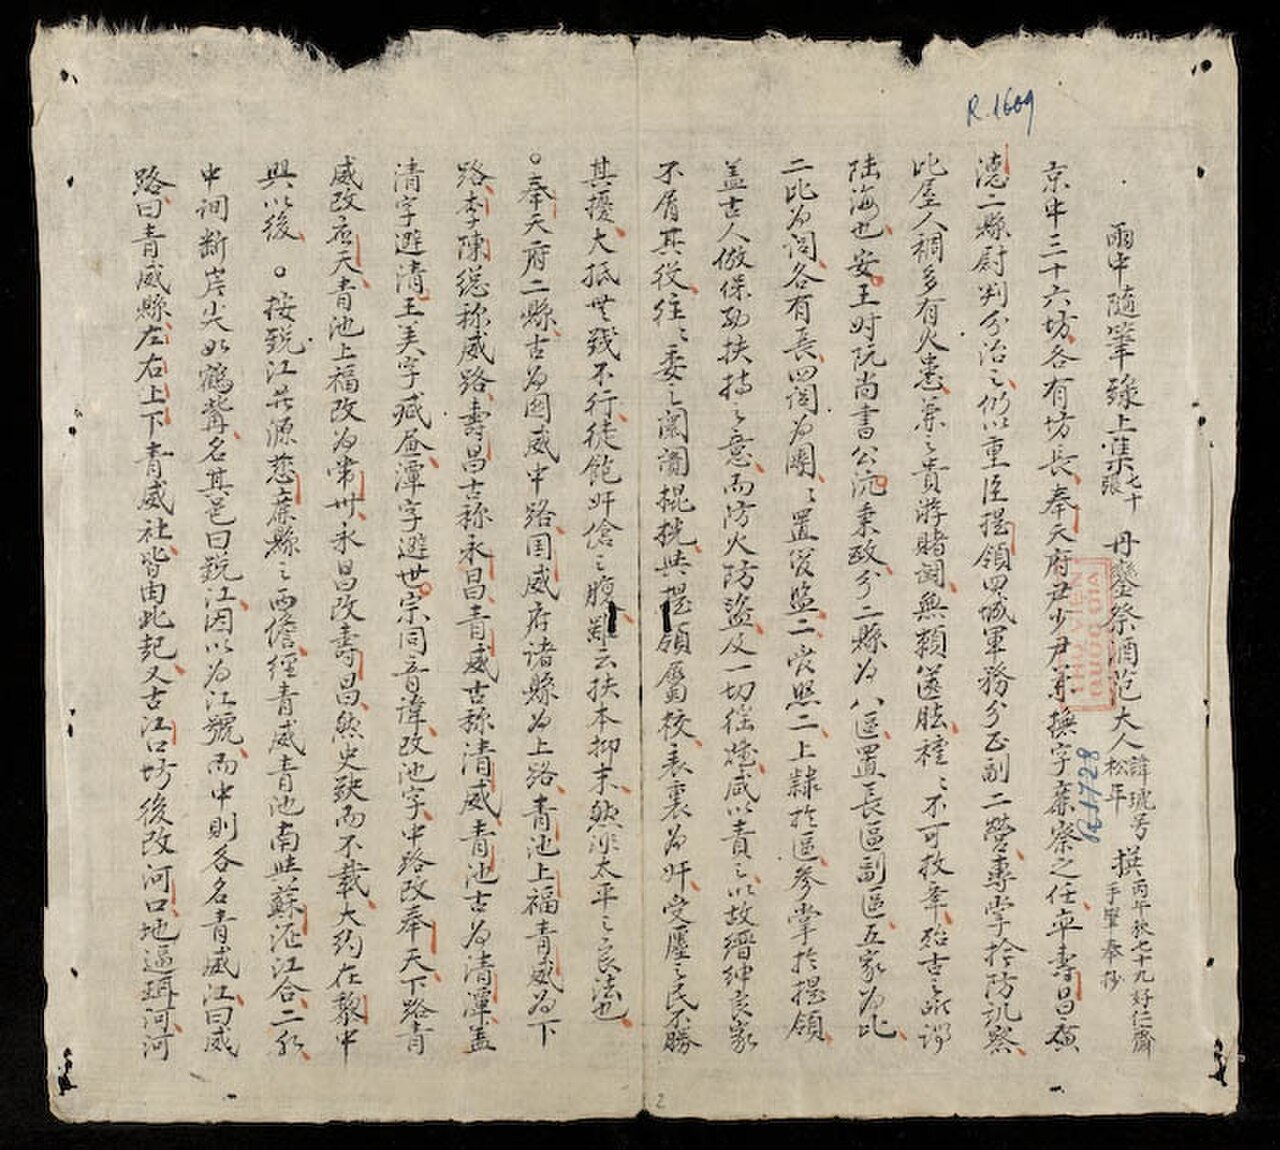 R.1609
雨中隨筆錄上集 七十張 丹鑾祭酒范大人 諱琥号松年 撰 丙午秋七十九好仁齋手肈奉抄
京中三十六坊各有坊長奉天府尹少尹兼撫字廉察之任率壽昌廣
德二縣尉判分治之仍以重臣提領四城軍務分正副二營專掌捡防譏察
比屋人稠多有火患兼之貴游賭閎無賴篋胠種〻不可枚舉殆古之所謂
陆海也安王时阮尚書公沆秉政分二縣為八區置長區副區五家為比
二比為閭各有長四閭為團〻置管監二管照二上隸於區参掌於提領
盖古人倣保伍扶持之意而防火防盜及一切徭 咸以責之以故縉紳良家
不屑其役往〻委之闤闠棍 與提領屬校表裏為奸受廛之民不勝
其擾大抵世 不行徒飽奸傖之腹雖云扶本抑末然非太平之良法也
○奉天府二縣古為国威中路国威府诸縣為上路青池上福青威為下
路李陳総称威路壽昌古称永昌青威古称清威青池古为清潭盖
清字避清王美字 潭字避世宗同音諱改池字中路改奉天下路青
威改应天青池上福改为常 永昌改壽昌然史缺而不載大約在黎中
興以後○按銳江 源慈廉縣之西 經青威青池南與蘇 江合二
中间断岸尖如鶴觜名其邑曰銳江因以为江號而中則各名青威江曰威
路曰青威縣左右上下青威社皆由此起又古江口坊後改河口地逼珥河河
THƯ VIỆN
R.1728
2